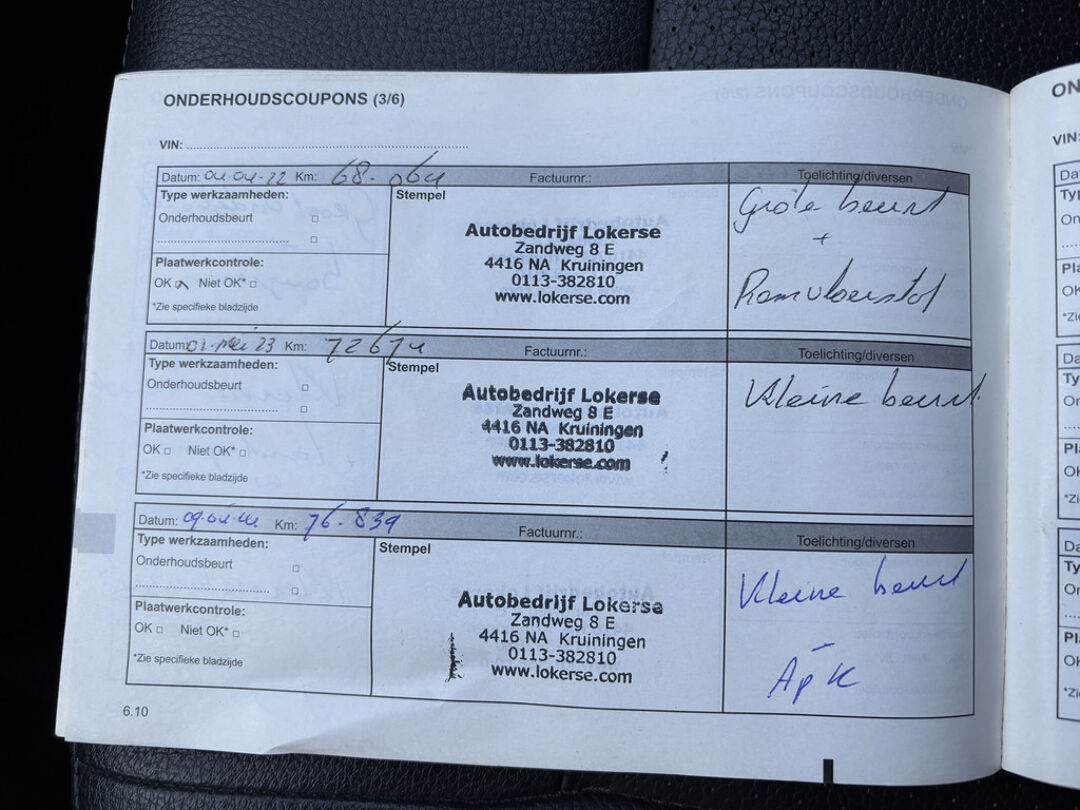 ONDERHOUDSCOUPONS (3/6)
VIN:
Datum: 04-04-22 Km: 68.064 Factuurnr.: Toelichting/diversen
Type werkzaamheden:
Stempel
Onderhoudsbeurt
Plaatwerkcontrole:
OK Niet OK*
*Zie specifieke bladzijde
Autobedrijf Lokerse
Zandweg 8 E
4416 NA Kruiningen
0113-382810
www.lokerse.com
Grote beurt
+
Remvloeistof
Datum: 01-Mei 23 Km: 72674 Factuurnr.: Toelichting/diversen
Type werkzaamheden:
Stempel
Onderhoudsbeurt
Plaatwerkcontrole:
OK Niet OK*
*Zie specifieke bladzijde
Autobedrijf Lokerse
Zandweg 8 E
4416 NA Kruiningen
0113-382810
www.lokerse.com
Kleine beurt
Datum: Km: 76.839 Factuurnr.: Toelichting/diversen
Type werkzaamheden:
Stempel
Onderhoudsbeurt
Plaatwerkcontrole:
OK Niet OK*
*Zie specifieke bladzijde
Autobedrijf Lokerse
Zandweg 8 E
4416 NA Kruiningen
0113-382810
www.lokerse.com
Kleine beurt
-
APK
6.10
ON
VIN: